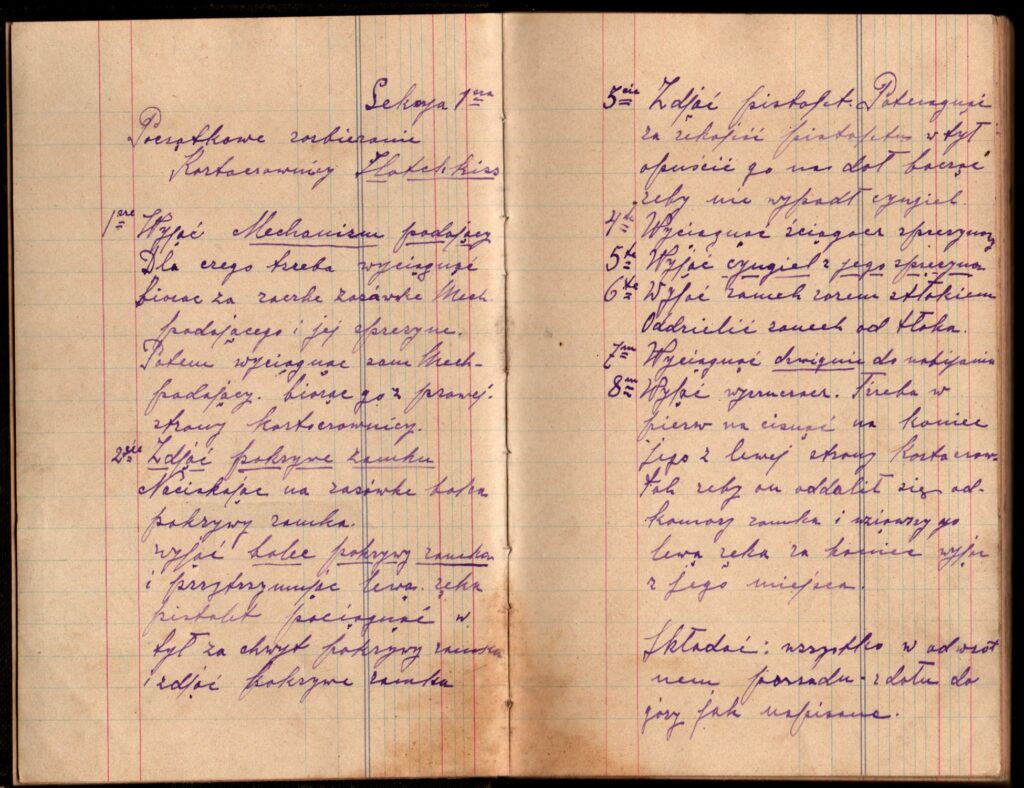 Lekcja 1sza
Początkowe rozbieranie
Kartaczownicy Hotchkiss
1sze Wyjąć Mechanizm podający
Dla czego trzeba wyciągnąć
biorąc za rączkę zasówkę Mech
podającego i jej sprężynę.
Potem wyciągnąc sam Mech-
podający. biorąc go z prawej.
strony kartaczownicy.
2gie Zdjąć pokrywę zamku
Naciskając na zasówkę bolca
pokrywy zamka.
wyjąć bolec pokrywy zamka
i przytrzymując lewą ręką
pistolet pociągnąć w
tył za chwyt pokrywy zamka
i zdjąć pokrywę zamka
3cie Zdjąć pistolet. Pociągnąć
za rękojiść pistoletu w tył
opuścić go na dół bacząc
żeby nie wypadł cyngiel.
4te Wyciągnąć ściągacz sprężyny
5te Wyjąć cyngiel z jego sprężyną
6te Wyjąć zamek razem z tłokiem
Oddzielić zamek od tłoka.
7me Wyciągnąć dzwignię do nabijania
8me Wyjąć wyrzucacz. Trzeba w
pierw nacisnąć na koniec
jego z lewej strony Kartaczow-
tak żeby on oddalił się od-
komory zamka i wziąwszy go
lewą ręką za koniec wyjąć
z jego miejsca.
Składać: wszystko w odwrót
nem porządu - z dołu do
góry jak napisane.